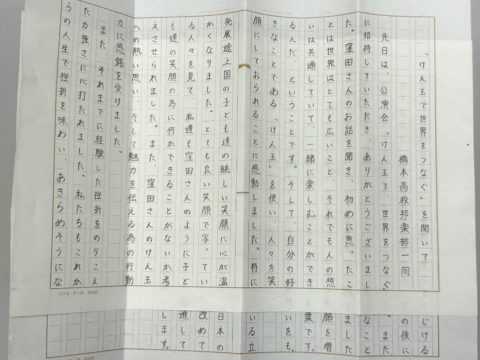 「けん玉で世界をつなぐ」を聞いて
橋本高校邦楽部一同
先日は、公演会「けん玉で、世界をつなぐ」
に招待していただき、ありがとうございまし
た。窪田さんのお話を聞き、初めに思ったこ
とは世界はとても広いこと、それでも人の想
いは共通していて、一緒に楽しむことができ
るんだ、ということです。そして、自分の好
きなことである「けん玉」を使い、人々を笑
顔にしておられることに感動しました。特に
発展途上国の子ども達の眩しい笑顔に心が温
かくなりました。とても良い笑顔で写ってい
る人々を見て、私達も窪田さんのように子ど
も達の笑顔の為に何かできることがないか考
えさせられました。また、窪田さんのけん玉
への熱い思い、そして魅力を伝える為の行動
力に感銘を受けました。
また、それまでに経験した挫折をのりこえ
た力強さに心打たれました。私たちもこれか
らの人生で挫折を味わい、あきらめそうにな
じける
の後に
また
なこと
ました
顔を増
です。
いをも
いる立
日本の
改めて
進して
します。